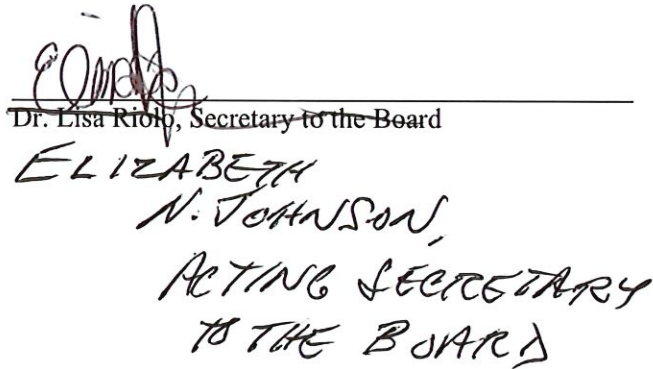 Dr. Lisa Riolo, Secretary to the Board
ELIZABETH
N. JOHNSON,
ACTING SECRETARY
TO THE BOARD